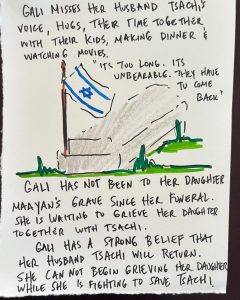 GALI MISSES HER HUSBAND TSACHI'S
VOICE, HUGS, THEIR TIME TOGETHER
WITH THEIR KIDS, MAKING DINNER &
WATCHING MOVIES.
"IT'S TOO LONG. ITS
UNBEARABLE. THEY HAVE
TO COME
BACK"
GALI HAS NOT BEEN TO HER DAUGHTER
MAAYAN'S GRAVE SINCE HER FUNERAL.
SHE IS WAITING TO GRIEVE HER DAUGHTER
TOGETHER WITH TSACHI.
GALI HAS A STRONG BELIEF THAT
HER HUSBAND TSACHI WILL RETURN.
SHE CAN NOT BEGIN GRIEVING HER DAUGHTER
WHILE SHE IS FIGHTING TO SAVE TSACHI.